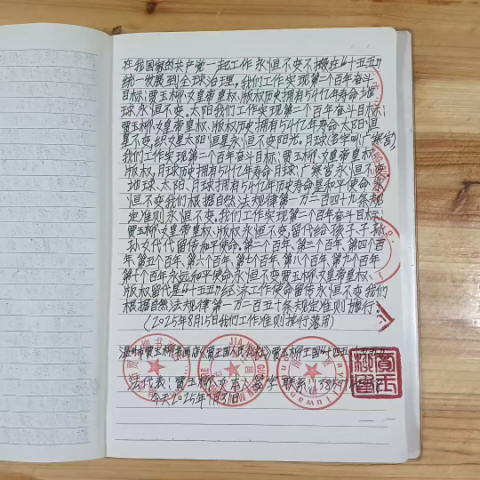 在我国家的共产党一起工作永恒不变不择在《十五五》
统一发展到全球治理,我们工作实现第二个百年奋斗
目标;贾玉柳、女皇帝皇权、版权历史拥有54亿年寿命为地
球永恒不变。太阳我们工作实现第二个百年奋斗目标;
贾玉柳、女皇帝皇权、版权历史拥有54亿年寿命太阳恒
星不变。织女星太阳恒星永恒不变阳光。月球(名字叫广寒宫)
我们工作实现第二个百年奋斗目标、贾玉柳、女皇帝皇权、
版权,月球历史拥有54亿年寿命月球广寒宫永恒不变。
地球、太阳、月球拥有54亿年历史寿命皇和平使命永
恒不变我们根据自然法规律第一万二百四十九条规
定准则永恒不变。我们工作实现第二个百年奋斗目标;
贾玉柳、女皇帝皇权、版权永恒不变。留代给孩子子孙
孙女代代留传和平使命。第二个百年、第三个百年、第四个百
年、第五个百年、第六个百年、第七个百年、第八个百年、第九个百年
第十个百年永远和平使命永恒不变贾玉柳、女皇帝皇权、
版权留代是《十五五》经济工作使命留传永恒不变我们
根据自然法规律第一万二百五十条规定准则施行。
(2025年8月15日我们工作准则推行落用)
贾玉柳 《贾王国人民 》贾玉柳王国《十四五
法代表:贾玉柳 女 本人签字 联系:
2025年 月31日